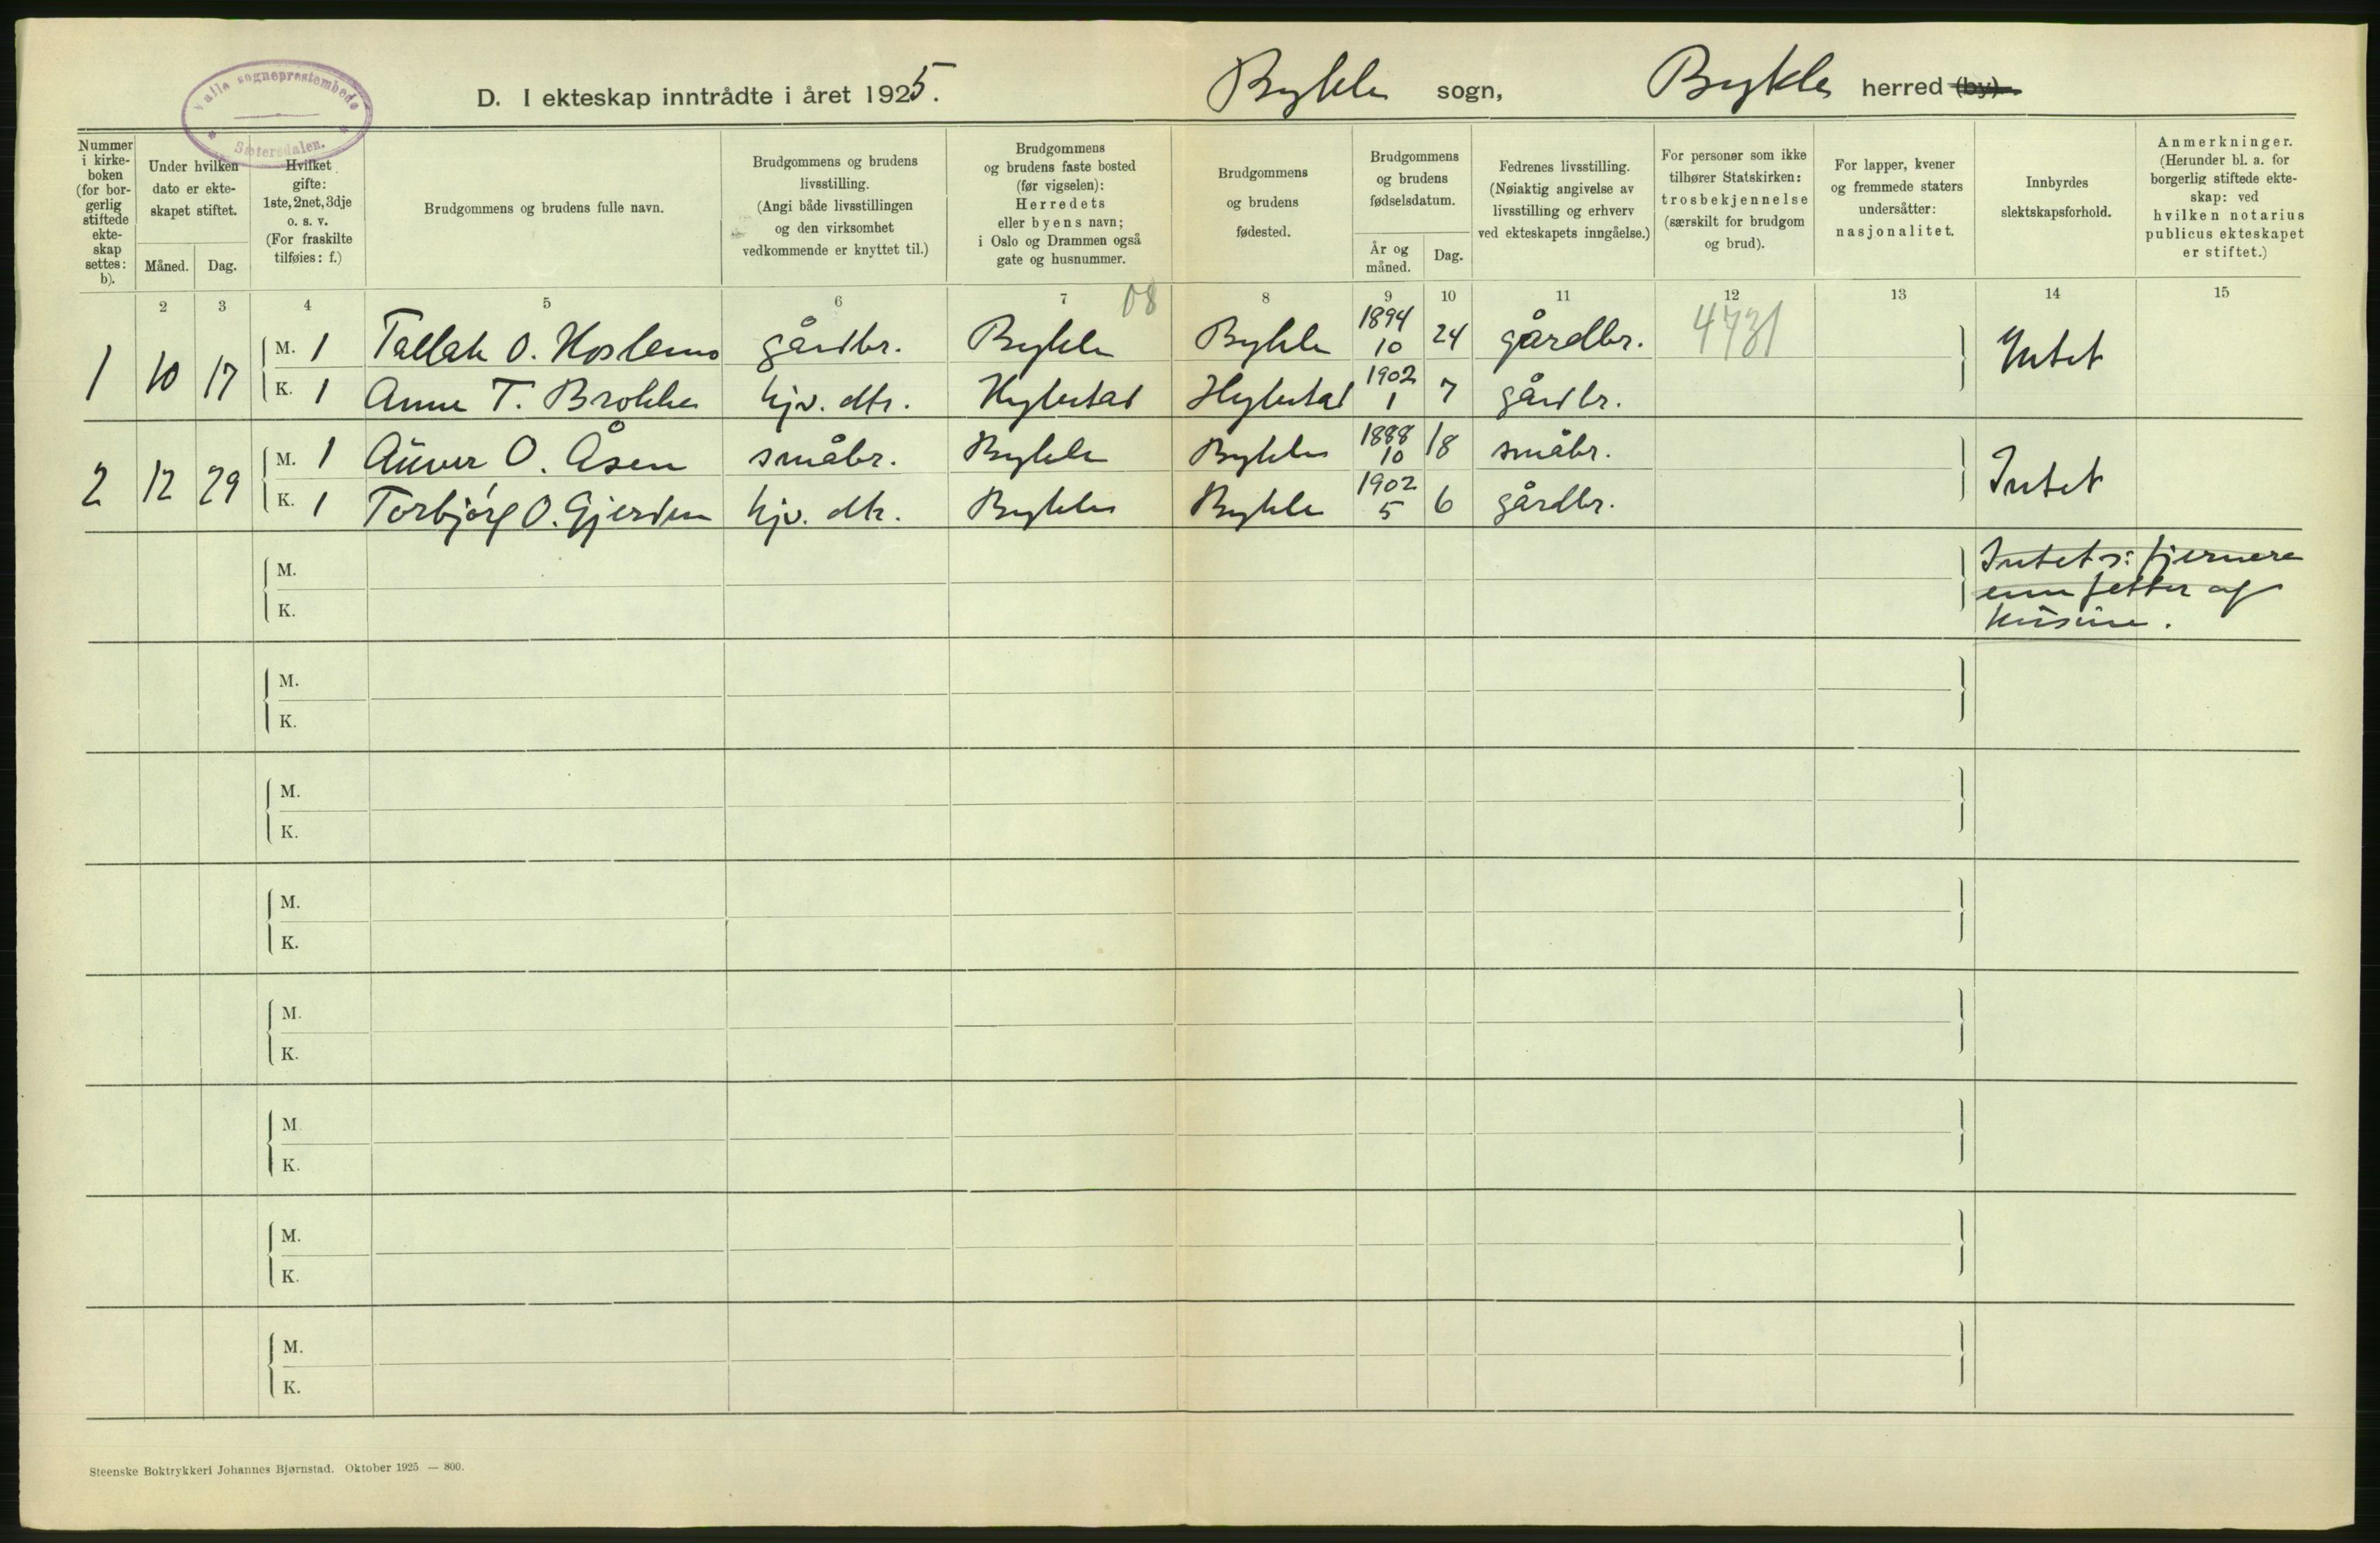 Valle sogneprestembede
Sætersdalen.
D. I ekteskap inntrådte i året 1925. Bykle sogn, Bykle herred (by).
Nummer i kirke-boken (for bor-gerlig stiftede ekte-skap settes: b).
Under hvilken dato er ekte-skapet stiftet.
Måned. Dag.
Hvilket gifte: 1ste, 2net, 3dje o. s. v. (For fraskilte tilføies: f.)
Brudgommens og brudens fulle navn.
Brudgommens og brudens livsstilling. (Angi både livsstillingen og den virksomhet vedkommende er knyttet til.)
Brudgommens og brudens faste bosted (før vigselen): Herredets eller byens navn; i Oslo og Drammen også gate og husnummer.
Brudgommens og brudens fødested.
Brudgommens og brudens fødselsdatum.
År og måned. Dag.
Fedrenes livsstilling. (Nøiaktig angivelse av livsstilling og erhverv ved ekteskapets inngåelse.)
For personer som ikke tilhører Statskirken: trosbekjennelse (særskilt for brudgom og brud).
For lapper, kvener og fremmede staters undersåtter: nasjonalitet.
Innbyrdes slektskapsforhold.
Anmerkninger. (Herunder bl. a. for borgerlig stiftede ekte-skap: ved hvilken notarius publicus ekteskapet er stiftet.)
2 3 4 5 6 7 08 8 9 10 11 12 13 14 15
1 10 17 M. 1 Tallak O. Hoslemo gårdbr. Bykle Bykle 1894 10 24 gårdbr. 4731 Intet
K. 1 Anne T. Brokke hjv. dtr. Hylestad Hylestad 1902 1 7 gårdbr.
2 12 29 M. 1 Aüver O. Åsen småbr. Bykle Bykle 1888 10 18 småbr. Intet
K. 1 Torbjørg O. Gjerden hjv. dtr. Bykle Bykle 1902 5 6 gårdbr.
M. Intet ɔ: fjernere
enn fetter og
K. kusine.
M.
K.
M.
K.
M.
K.
M.
K.
M.
K.
M.
K.
M.
K.
Steenske Boktrykkeri Johannes Bjørnstad. Oktober 1925 — 800.